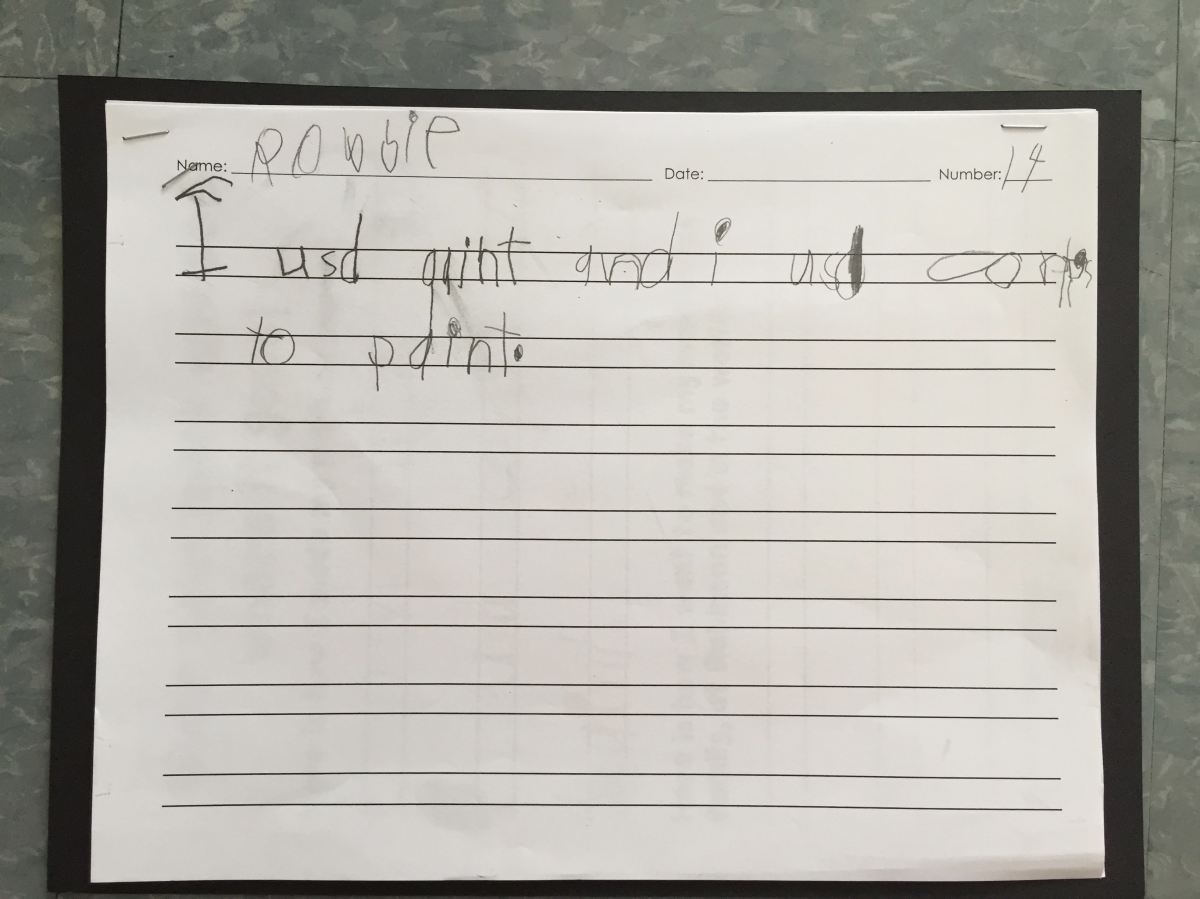 Name: Robbie Date: Number: 14
I usd and i usd
to paint.